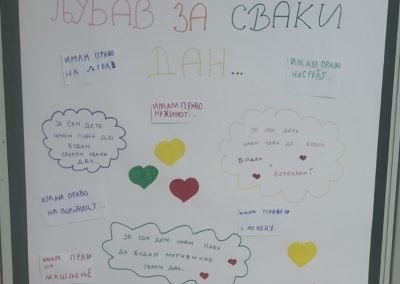 ЉУБАВ ЗА СВАКИ
ДАН...
ИМАМ ПРАВО
НА ЉУБАВ
ИМАМ ПРАВО
НА СРЕЋУ...
ИМАМ ПРАВО
НА ЖИВОТ...
ЈА САМ ДЕТЕ
ИМАМ ПЛАН ДА
БУДЕМ
СРЕЋАН СВАКИ
ДАН...
ЈА САМ ДЕТЕ
ИМАМ ПЛАН ДА БУДЕМ
ВОЂЕН
И
БЕЗБЕДАН!
ИМАМ ПРАВО
НА ПОРОДИЦУ...
ИМАМ ПРАВО
СЛОБОДУ
ЈА САМ ДЕТЕ ИМАМ ПЛАН
ДА БУДЕМ МОТИВИСАН
СВАКИ ДАН...
ИМАМ ПРАВО
НА
МИШЉЕЊЕ